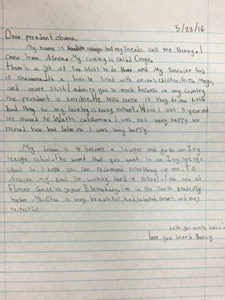 5/23/16
Dear president obama,
My name is but my friends call me Bunny. I
come from Africa My contry is called Congo.
There is a lot of fun stuff to do there and My favorite fruit
is
and never stuff. I admire you so much because in my contry
the president is terrible. He kills people if they do one little
bad thing so my contry is very violent. When I was 5 years old
we moved to Watts, california I was not very happy we
moved here but later on I was very happy.
My dream is to become a lawyer and go to an Ivy
league school. I've heard that you went to an Ivy league
school so I hope you can recomend something to me. To
Acheive my goal I'm working hard in school. I am now at
Florence Griffith Joyner Elementary. I'm in the fourth grade my
teacher is very beautiful, kind, talented, smart, and very
respectful.
hope you write back
love, your friend Bunny